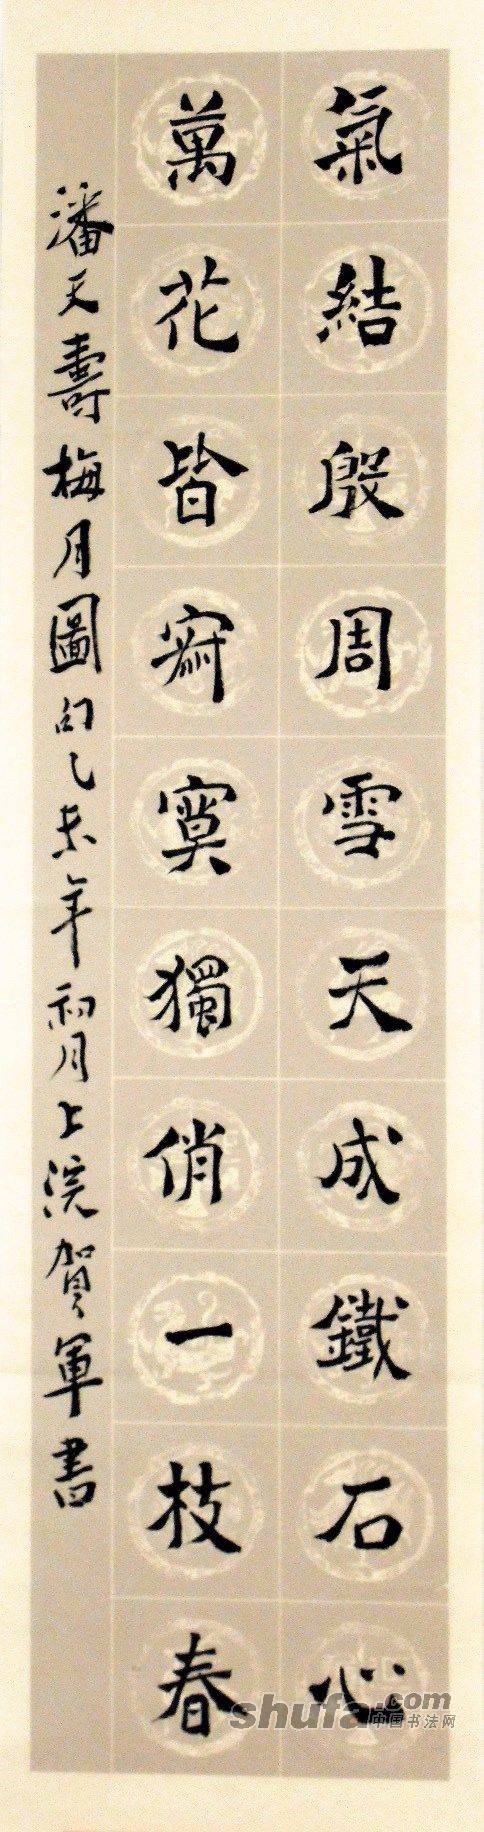 氣結殷周雪天成鐵石心
萬花皆寂寞獨俏一枝春
潘天壽梅月圖句乙未年初月上浣賀軍書
shufa.com
中国书法网